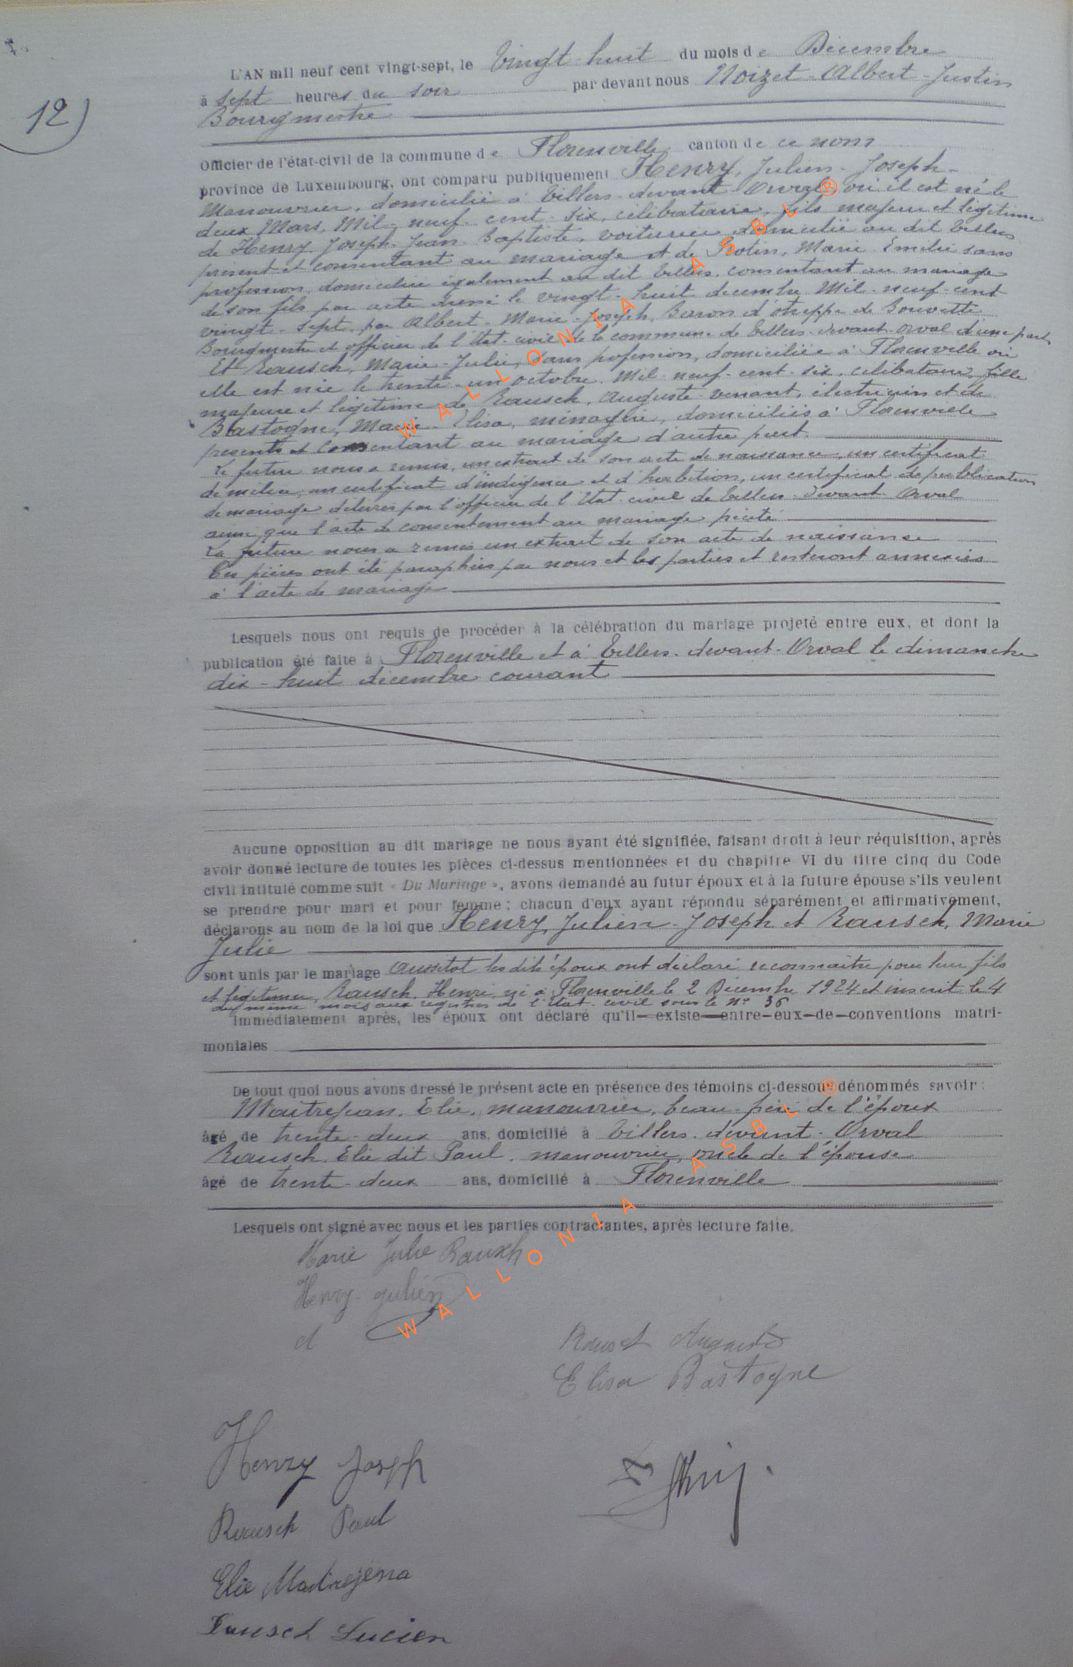 12)
L'AN mil neuf cent vingt-sept, le Vingt-huit du mois de Décembre
à sept heures du soir par devant nous Noizet-Albert-Justin
Bourgmestre
Officier de l'état-civil de la commune de Florenville, canton de ce nom
province de Luxembourg, ont comparu publiquement Henry, Julien-Joseph-
Manouvrier, domicilié à Villers-devant-Orval où il est né le
deux Mars, Mil-neuf-cent-six, célibataire, fils majeur et légitime
de Henry Joseph-Jean Baptiste, voiturier domicilié au dit Villers
présent et consentant au mariage et de Rolin, Marie Emelie sans
profession, domiciliée également au dit Villers, consentant au mariage
de son fils par acte dressé le vingt-huit décembre Mil-neuf-cent
vingt-sept, par Albert-Marie-Joseph, Baron d'otreppe de Bouvette
Bourgmestre et officier de l'Etat-civil de la commune de Villers-devant-Orval d'une part,
Et Rausch, Marie-Julie, sans profession, domiciliée à Florenville où
elle est née le trente-un octobre Mil-neuf-cent-six, célibataire, fille
majeure et légitime de Rausch, Auguste venant, électricien et de
Bastogne, Marie-Elisa, ménagère, domiciliés à Florenville
présents et consentant au mariage d'autre part.
Le futur nous a remis, un extrait de son acte de naissance, un certificat
de milice, un certificat d'indigence et d'habition, un certificat de publication
de mariage délivrés par l'officier de l'Etat-civil de Villers-devant-Orval
ainsi que l'acte de consentement au mariage précité
La future nous a remis un extrait de son acte de naissance
Ces pièces ont été paraphées par nous et les parties et resteront annexées
à l'acte de mariage
Lesquels nous ont requis de procéder à la célébration du mariage projeté entre eux, et dont la
publication été faite à Florenville et à Villers-devant-Orval le dimanche
dix-huit décembre courant
Aucune opposition au dit mariage ne nous ayant été signifiée, faisant droit à leur réquisition, après
avoir donné lecture de toutes les pièces ci-dessus mentionnées et du chapitre VI du titre cinq du Code
civil intitulé comme suit « Du Mariage », avons demandé au futur époux et à la future épouse s'ils veulent
se prendre pour mari et pour femme ; chacun d'eux ayant répondu séparément et affirmativement,
déclarons au nom de la loi que Henry, Julien-Joseph et Rausch, Marie
Julie
sont unis par le mariage aussitot les dits époux ont déclaré reconnaitre pour leur fils
et légitimer, Rausch, Henri né à Florenville le 2 Décembre 1924 et inscrit le 4
du même mois aux registres de l'Etat-civil sous le N° 36
Immédiatement après, les époux ont déclaré qu'il existe entre eux de conventions matri-
moniales
De tout quoi nous avons dressé le présent acte en présence des témoins ci-dessous dénommés savoir :
Maitrejean, Elie, manouvrier, beau-frère de l'époux
âgé de trente-deux ans, domicilié à Villers-devant-Orval
Rausch Elie dit Paul, manouvrier, oncle de l'épouse
âgé de trente-deux ans, domicilié à Florenville
Lesquels ont signé avec nous et les parties contractantes, après lecture faite.
Marie Julie Rausch
Henry-julien
Rausch Auguste
Elisa Bastogne
Henry Joseph
Rausch Paul
Elie
Rausch Lucien
WALLONIA ASBL
WALLONIA ASBL